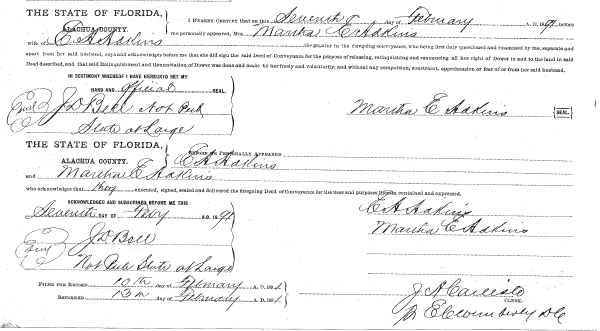 THE STATE OF FLORIDA,
ALACHUA COUNTY.
I HEREBY CERTIFY that on this Seventh day of February A. D. 1891, before
me personally appeared, Mrs. Martha E Adkins
wife of E A Adkins the grantor in the foregoing conveyance, who being first duly questioned and examined by me, separate and
apart from her said husband, acknowledges before me that she did sign the said Deed of Conveyance for the purpose of releasing, relinquishing and renouncing all her right of Dower in and to the land in said
Deed described, and that said Relinquishment and Renunciation of Dower was done and made by her freely and voluntarily, and without any compulsion, constraint, apprehension or fear of or from her said husband.
IN TESTIMONY WHEREOF I HAVE HEREUNTO SET MY
HAND AND official SEAL.
J D Bell Not Pub
State at Large
Martha E Adkins SEAL.
THE STATE OF FLORIDA,
ALACHUA COUNTY.
BEFORE ME PERSONALLY APPEARED
E A Adkins
and Martha E Adkins
who acknowledges that they executed, signed, sealed and delivered the foregoing Deed of Conveyance for the uses and purposes therein contained and expressed.
ACKNOWLEDGED AND SUBSCRIBED BEFORE ME THIS
Seventh DAY OF Feby A. D. 1891
J D Bell
Not Pub State at Large
E A Adkins
Martha E Adkins
FILED FOR RECORD 10th day of February A. D. 1891
RECORDED 13th day of February A. D. 1891
J A Carlisle
CLERK.